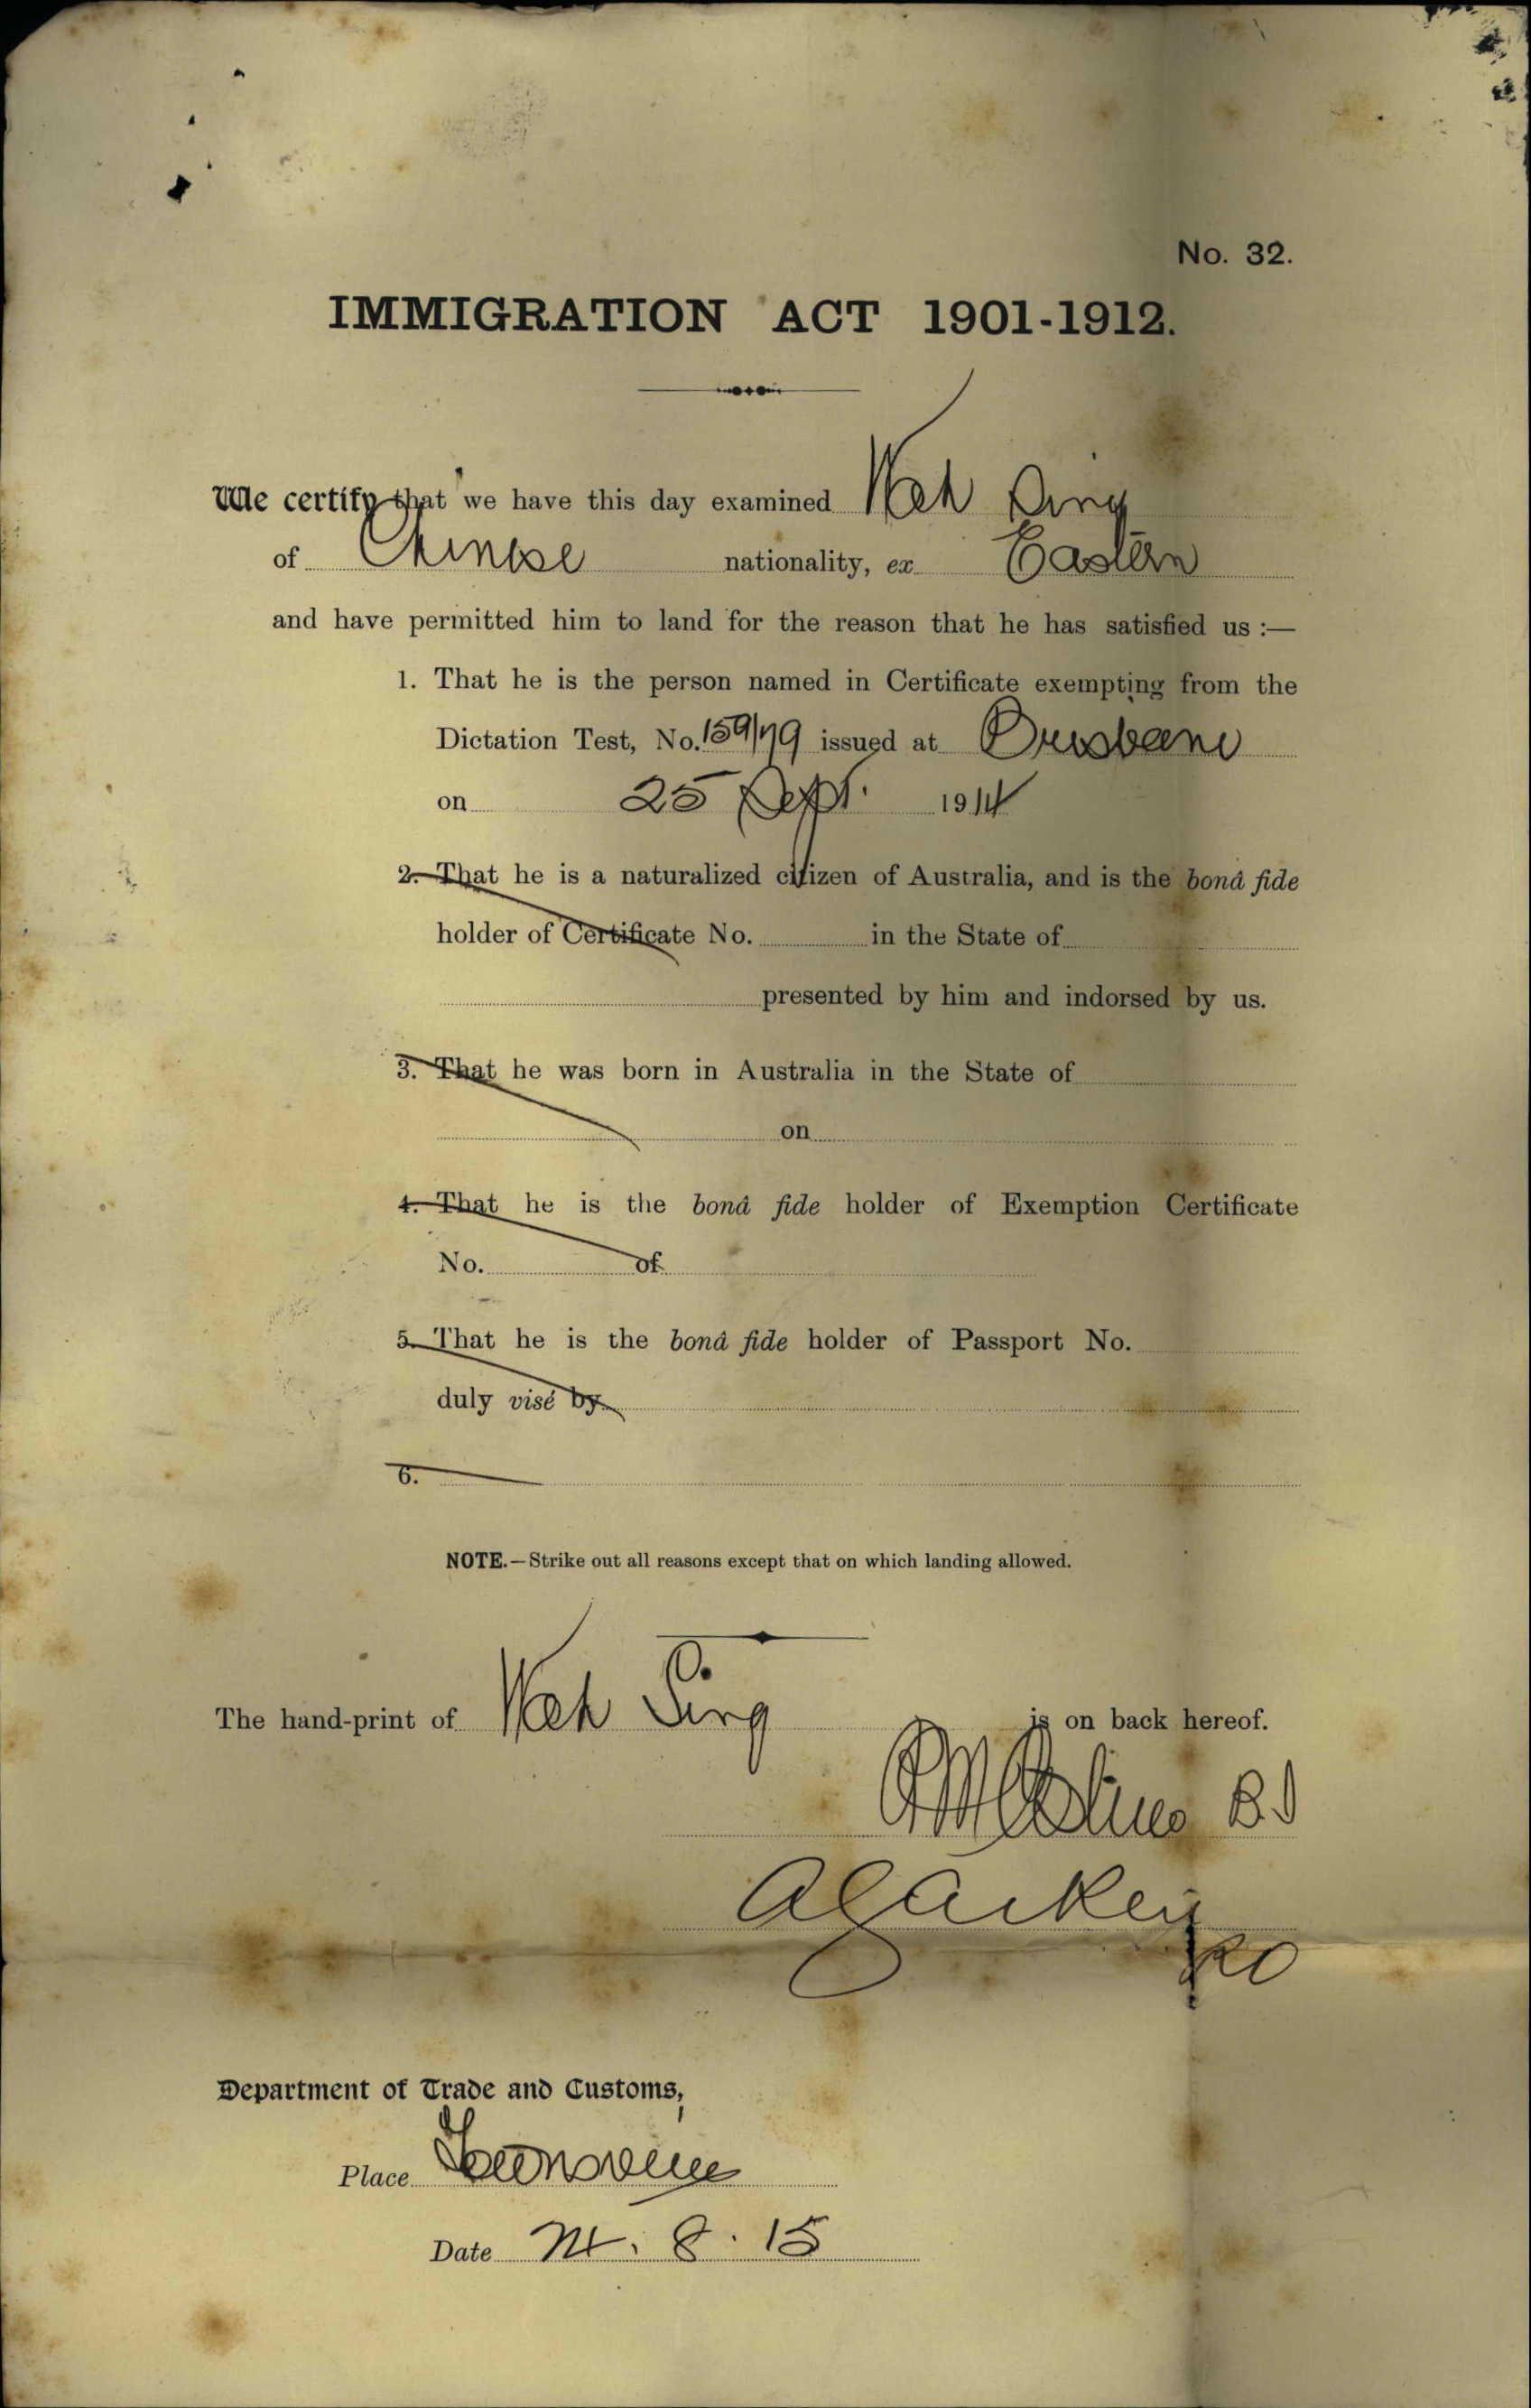 No. 32.
IMMIGRATION ACT 1901-1912.
We certify that we have this day examined Wah Sing
of Chinese nationality, ex Eastern
and have permitted him to land for the reason that he has satisfied us :—
1. That he is the person named in Certificate exempting from the
Dictation Test, No. 159/79 issued at Brisbane
on 25 Sept. 1914
2. That he is a naturalized citizen of Australia, and is the bonâ fide
holder of Certificate No. in the State of
presented by him and indorsed by us.
3. That he was born in Australia in the State of
on
4. That he is the bonâ fide holder of Exemption Certificate
No. of
5. That he is the bonâ fide holder of Passport No.
duly visé by
6.
NOTE.—Strike out all reasons except that on which landing allowed.
The hand-print of Wah Sing is on back hereof.
Department of Trade and Customs,
Place Townsville
Date 8. 15